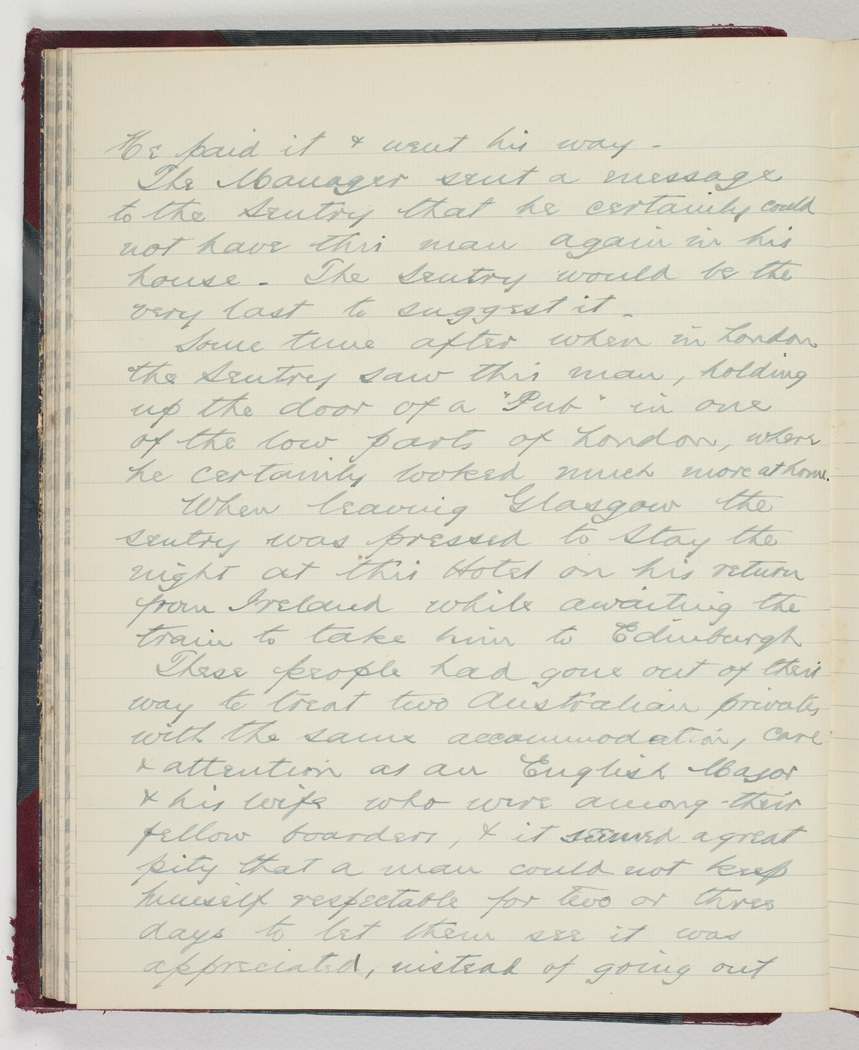 He paid it & went his way -
The Manager sent a message
to the Sentry that he certainly could
not have this man again in his
house - The Sentry would be the
very last to suggest it -
Some time after when in London
the Sentry saw this man, holding
up the door of a "Pub" in one
of the low parts of London, where
he certainly looked much more at home.
When leaving Glasgow the
sentry was pressed to stay the
night at this Hotel on his return
from Ireland while awaiting the
train to take him to Edinburgh
These people had gone out of their
way to treat two Australian privates
with the same accommodation, care
& attention as an English Major
& his wife who were among their
fellow boarders, & it seemed a great
pity that a man could not keep
himself respectable for two or three
days to let them see it was
appreciated, instead of going out